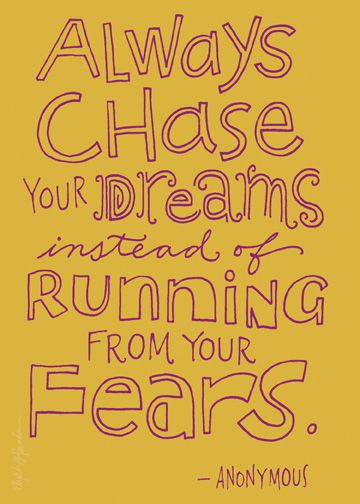 ALWAYS
CHASE
YOUR DREAMS
instead of
RUNNING
FROM YOUR
FEARS.
– ANONYMOUS